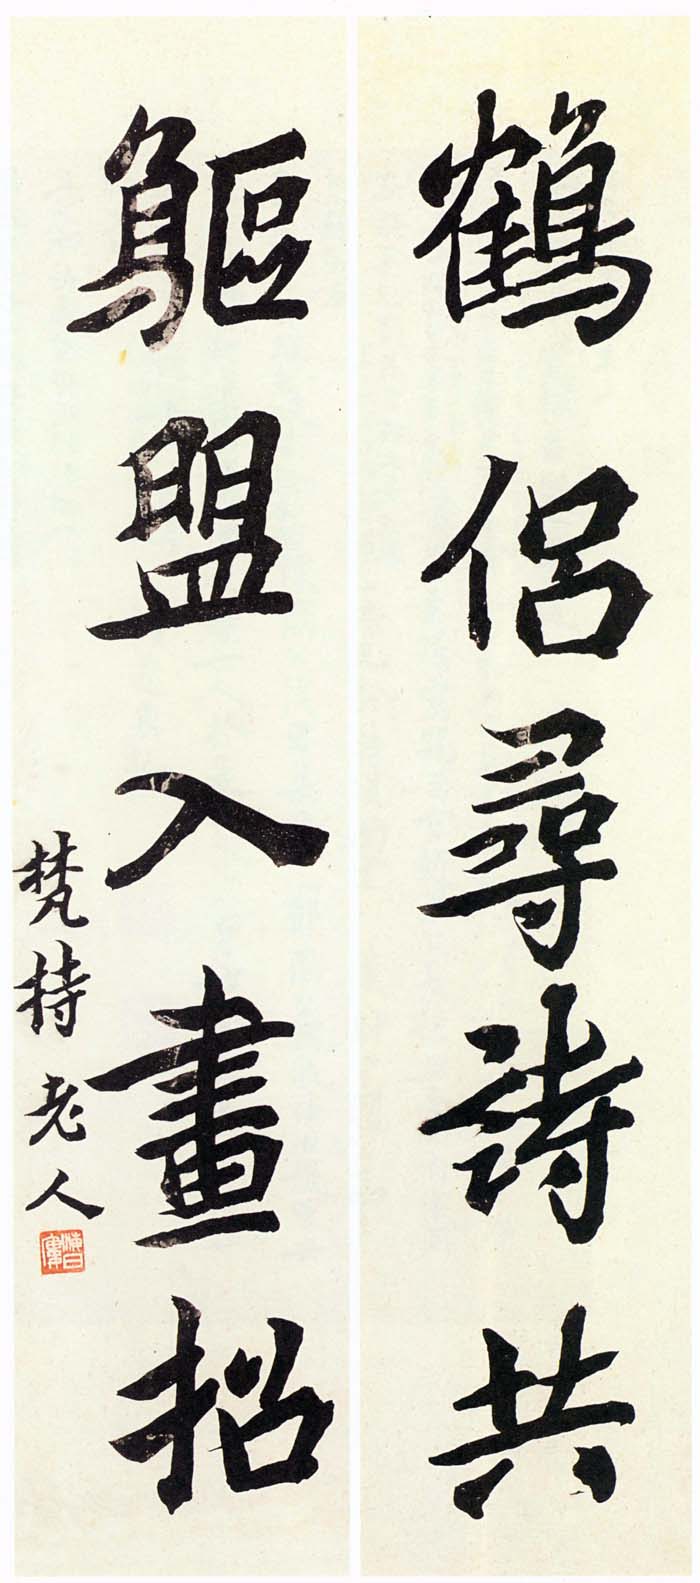 鶴侶尋詩共
鷗盟入畫招
梵持老人
海日廔